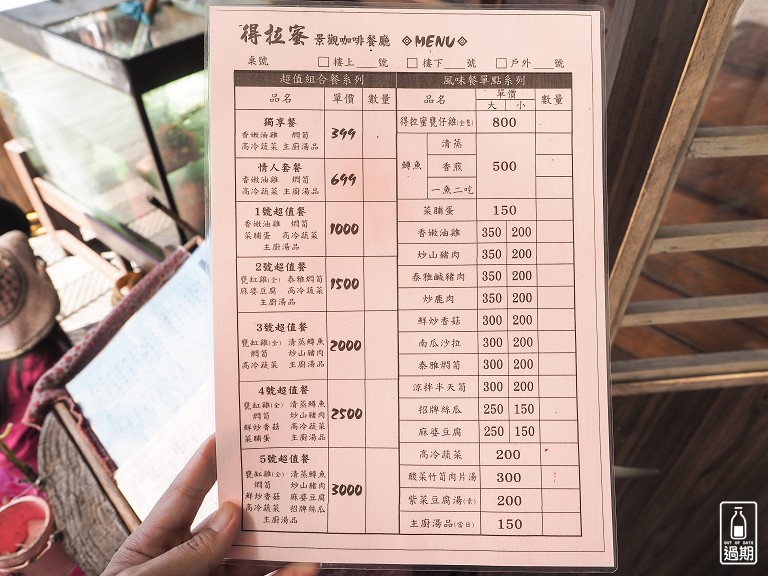 得拉蜜 景觀咖啡餐廳 MENU
桌號 樓上 號 樓下 號 戶外 號
超值組合餐系列
品名 單價 數量
獨享餐 399
香嫩油雞 燜筍
高冷蔬菜 主廚湯品
情人套餐 699
香嫩油雞 燜筍
高冷蔬菜 主廚湯品
1號超值餐 1000
香嫩油雞 燜筍
菜脯蛋 高冷蔬菜
主廚湯品
2號超值餐 1500
甕缸雞(全) 泰雅燜筍
麻婆豆腐 高冷蔬菜
主廚湯品
3號超值餐 2000
甕缸雞(全) 清蒸鱒魚
燜筍 炒山豬肉
高冷蔬菜 主廚湯品
4號超值餐 2500
甕缸雞(全) 清蒸鱒魚
燜筍 炒山豬肉
鮮炒香菇 高冷蔬菜
菜脯蛋 主廚湯品
5號超值餐 3000
甕缸雞(全) 清蒸鱒魚
燜筍 炒山豬肉
鮮炒香菇 麻婆豆腐
高冷蔬菜 招牌絲瓜
主廚湯品
風味餐單點系列
品名 單價 大 小 數量
得拉蜜甕仔雞(全隻) 800
鱒魚 清蒸 香煎 一魚二吃 500
菜脯蛋 150
香嫩油雞 350 200
炒山豬肉 350 200
泰雅鹹豬肉 350 200
炒鹿肉 350 200
鮮炒香菇 300 200
南瓜沙拉 300 200
泰雅燜筍 300 200
涼拌半天筍 300 200
招牌絲瓜 250 150
麻婆豆腐 250 150
高冷蔬菜 200
酸菜竹筍肉片湯 300
紫菜豆腐湯(素) 200
主廚湯品(當日) 150
OUT OF DATE
過期